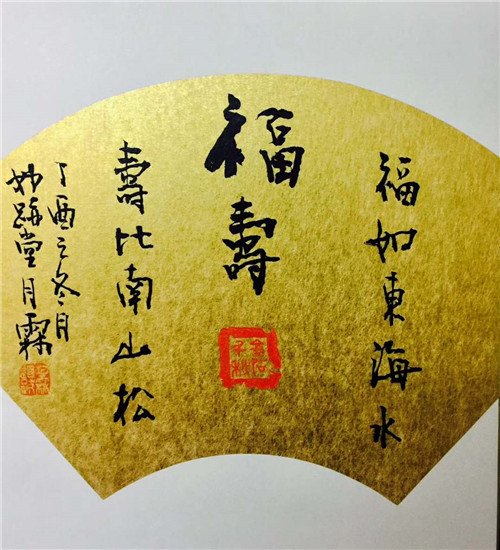 福如東海水
福壽
壽比南山松
丁酉之冬月
妙蹟堂月霖